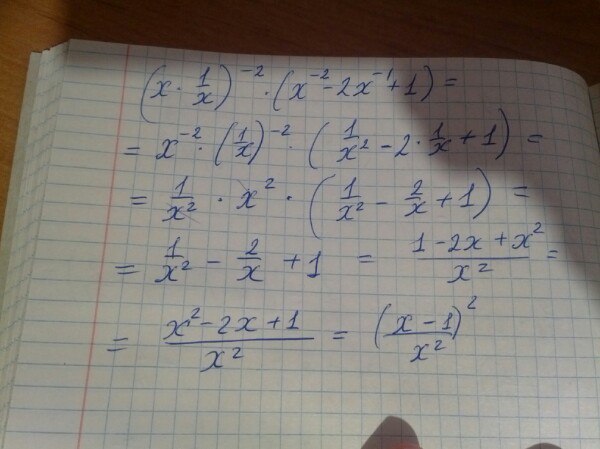 (x · 1/x)⁻² · (x⁻² - 2x⁻¹ + 1) =
= x⁻² · (1/x)⁻² · (1/x² - 2 · 1/x + 1) =
= 1/x² · x² · (1/x² - 2/x + 1) =
= 1/x² - 2/x + 1 = (1 - 2x + x²)/x² =
= (x² - 2x + 1)/x² = (x - 1)²/x²